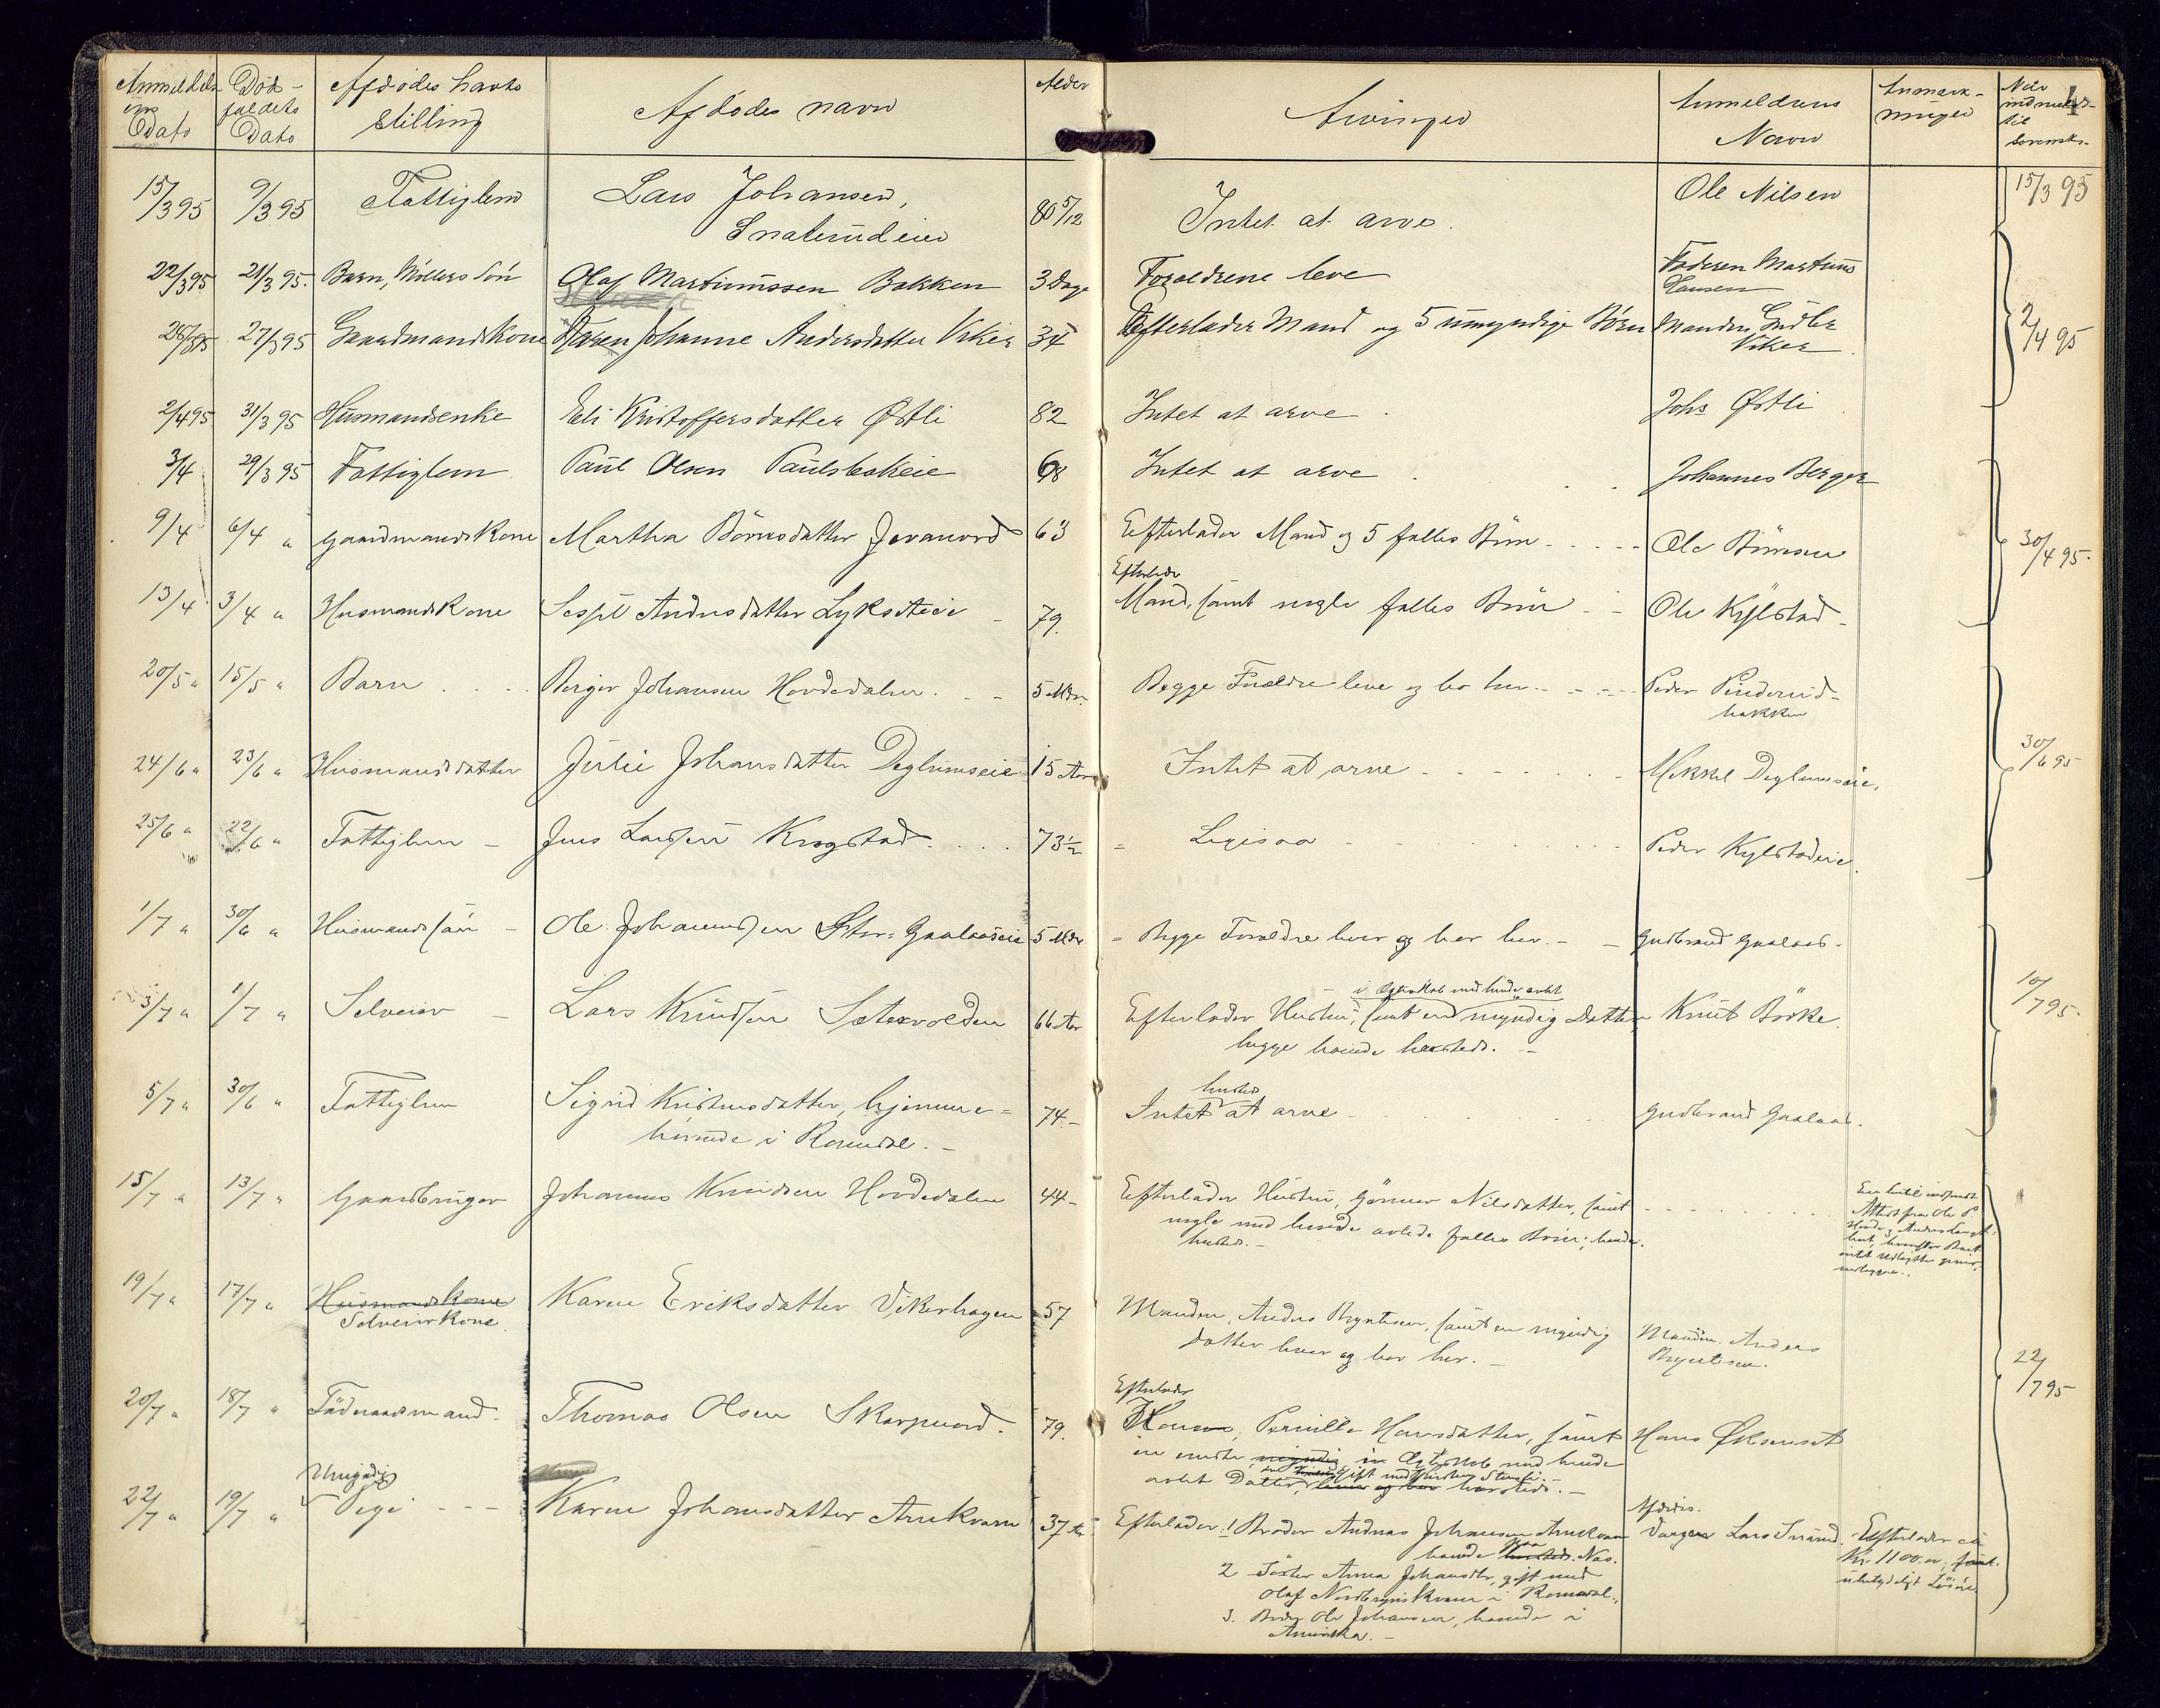 Anmeldelsens Dato | Dødsfaldets Dato | Afdødes havte Stilling | Afdødes navn | Alder | Arvinger | Anmelderens Navn | Anmærkninger | Naar indmeldt til Sorensk. | 4
15/3 95 | 9/3 95 | Fattiglem | Lars Johansen, | 80 5/12 | Intet at arve. | Ole Nilsen | 15/3 95
Snaterudeier
22/3 95 | 21/3 95. | Barn, Møllers Søn | Olaf Martinussen Bakken | 3 Dage | Forældrene leve | Faderen Martinus
Hansen
28/3 95 | 27/3 95 | Gaardmandskone | Karen Johanne Andersdatter Viker | 34 | Efterlader Mand og 5 umyndige Børn | Manden Gudbr. | 2/4 95
Viker
2/4 95 | 31/3 95 | Husmandsenke | Eli Kristoffersdatter Østli | 82 | Intet at arve | Johs Østli
3/4 | 29/3 95 | Fattiglem | Paul Olsen Paulsbakeie | 68 | Intet at arve | Johannes Berger
9/4 | 6/4 " | Gaardmandskone | Martha Börresdatter | 63 | Efterlader Mand og 5 fælles Börn | Ole | 30/4 95.
Efterlader
13/4 | 3/4 " | Husmandskone | Andersdatter | 79. | Mand, samt nogle fælles Börn | Ole Kylstad
20/5 " | 15/5 " | Barn | Birger Johansen Hordedalen. | 5 Mdr. | Begge Forældre leve og bo her. | Peder Pinderud-
bakken
24/6 " | 23/6 " | Husmandsdatter | Julie Johansdatter Deglumseie | 15 Aar | Intet at arve | Mikkel Deglumseie. | 30/6 95
25/6 " | 22/6 " | Fattiglem | Jens Larsen Krogstad. | 73½ | Ligesaa | Peder Kylstadeie.
1/7 " | 30/6 " | Husmandssön | Ole Johannessen Gaalaaseie | 5 Mdr | Begge Forældre lever og bor her. | Gudbrand Gaalaas.
i Ægteskab med hende avlet
3/7 " | 1/7 " | Selveier | Lars Knudsen Sætervolden | 66 Aar | Efterlader Hustru, samt en myndig Datter | Knut Börke. | 10/7 95.
begge boende hersteds.
hersteds
5/7 " | 30/6 " | Fattiglem | Sigrid Kristensdatter, hjemme- | 74. | Intet at arve | Gudbrand Gaalaas.
hörende i Romedal.
15/7 " | 13/7 " | Gaardbruger | Johannes Knudsen Hordedalen | 44 | Efterlader Hustru, Nilsdatter, samt
nogle med hende avlede fælles Börn, boende
hersteds.
19/7 " | 17/7 " | Husmandskone | Karen Eriksdatter Vikerhagen | 57 | Manden, Anders Bryntesen, samt en myndig | Manden Anders
Selveierkone. | Datter lever og bor her. | Bryntesen. | 22/7 95
Efterlader
20/7 " | 18/7 " | Föderaadsmand | Thomas Olsen Skarpnord. | 79. | Kone, Pernille Hansdatter, samt | Hans Øksenset
en eneste myndig, i Ægteskab med hende
avlet Datter, lever og bor hersteds.
Umyndig | Afdødes
22/7 " | 19/7 " | Pige | Karen Johansdatter Arnkværn | 37 Aar | Efterlader: 1 Broder Andreas Johansen Arnkværn | Værge Lars | Efterlader ca
boende hersteds. | Kr. 1100.00, samt
2 Söster Anna Johansdtr, gift med | ubetydeligt Lösöre
Olaf i Romedal.
3. Broder Ole Johansen, boende i
Amerika.